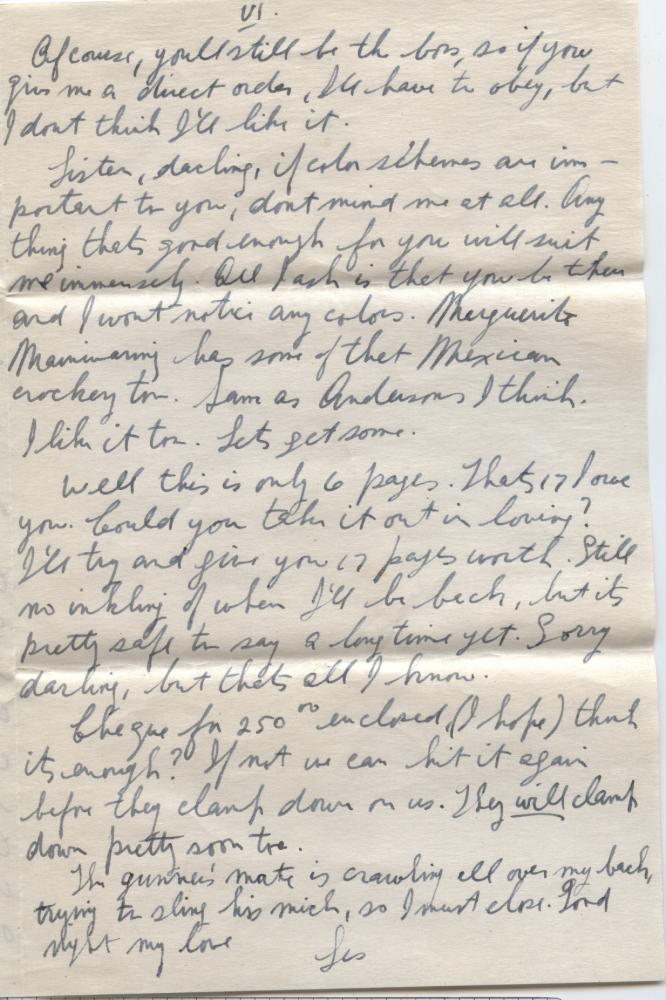 VI.
Of course, you'll still be the boss, so if you
give me a direct order, I'll have to obey, but
I dont think I'll like it.
Listen, darling, if color schemes are im-
portant to you, dont mind me at all. Any
thing thats good enough for you will suit
me immensely. All I ask is that you be there
and I wont notice any colors. Marguerite
Mainwaring has some of that Mexican
crockery too. Same as Andersons I think.
I like it too. Lets get some.
Well this is only 6 pages. Thats 17 I owe
you. Could you take it out in loving?
I'll try and give you 17 pages worth. Still
no inkling of when I'll be back, but its
pretty safe to say a long time yet. Sorry
darling, but thats all I know.
Cheque for 250⁰⁰ enclosed, (I hope) think
its enough? If not we can hit it again
before they clamp down on us. They will clamp
down pretty soon too.
The gunner's mate is crawling all over my back,
trying to sling his mick, so I must close. Good
night my love
Les